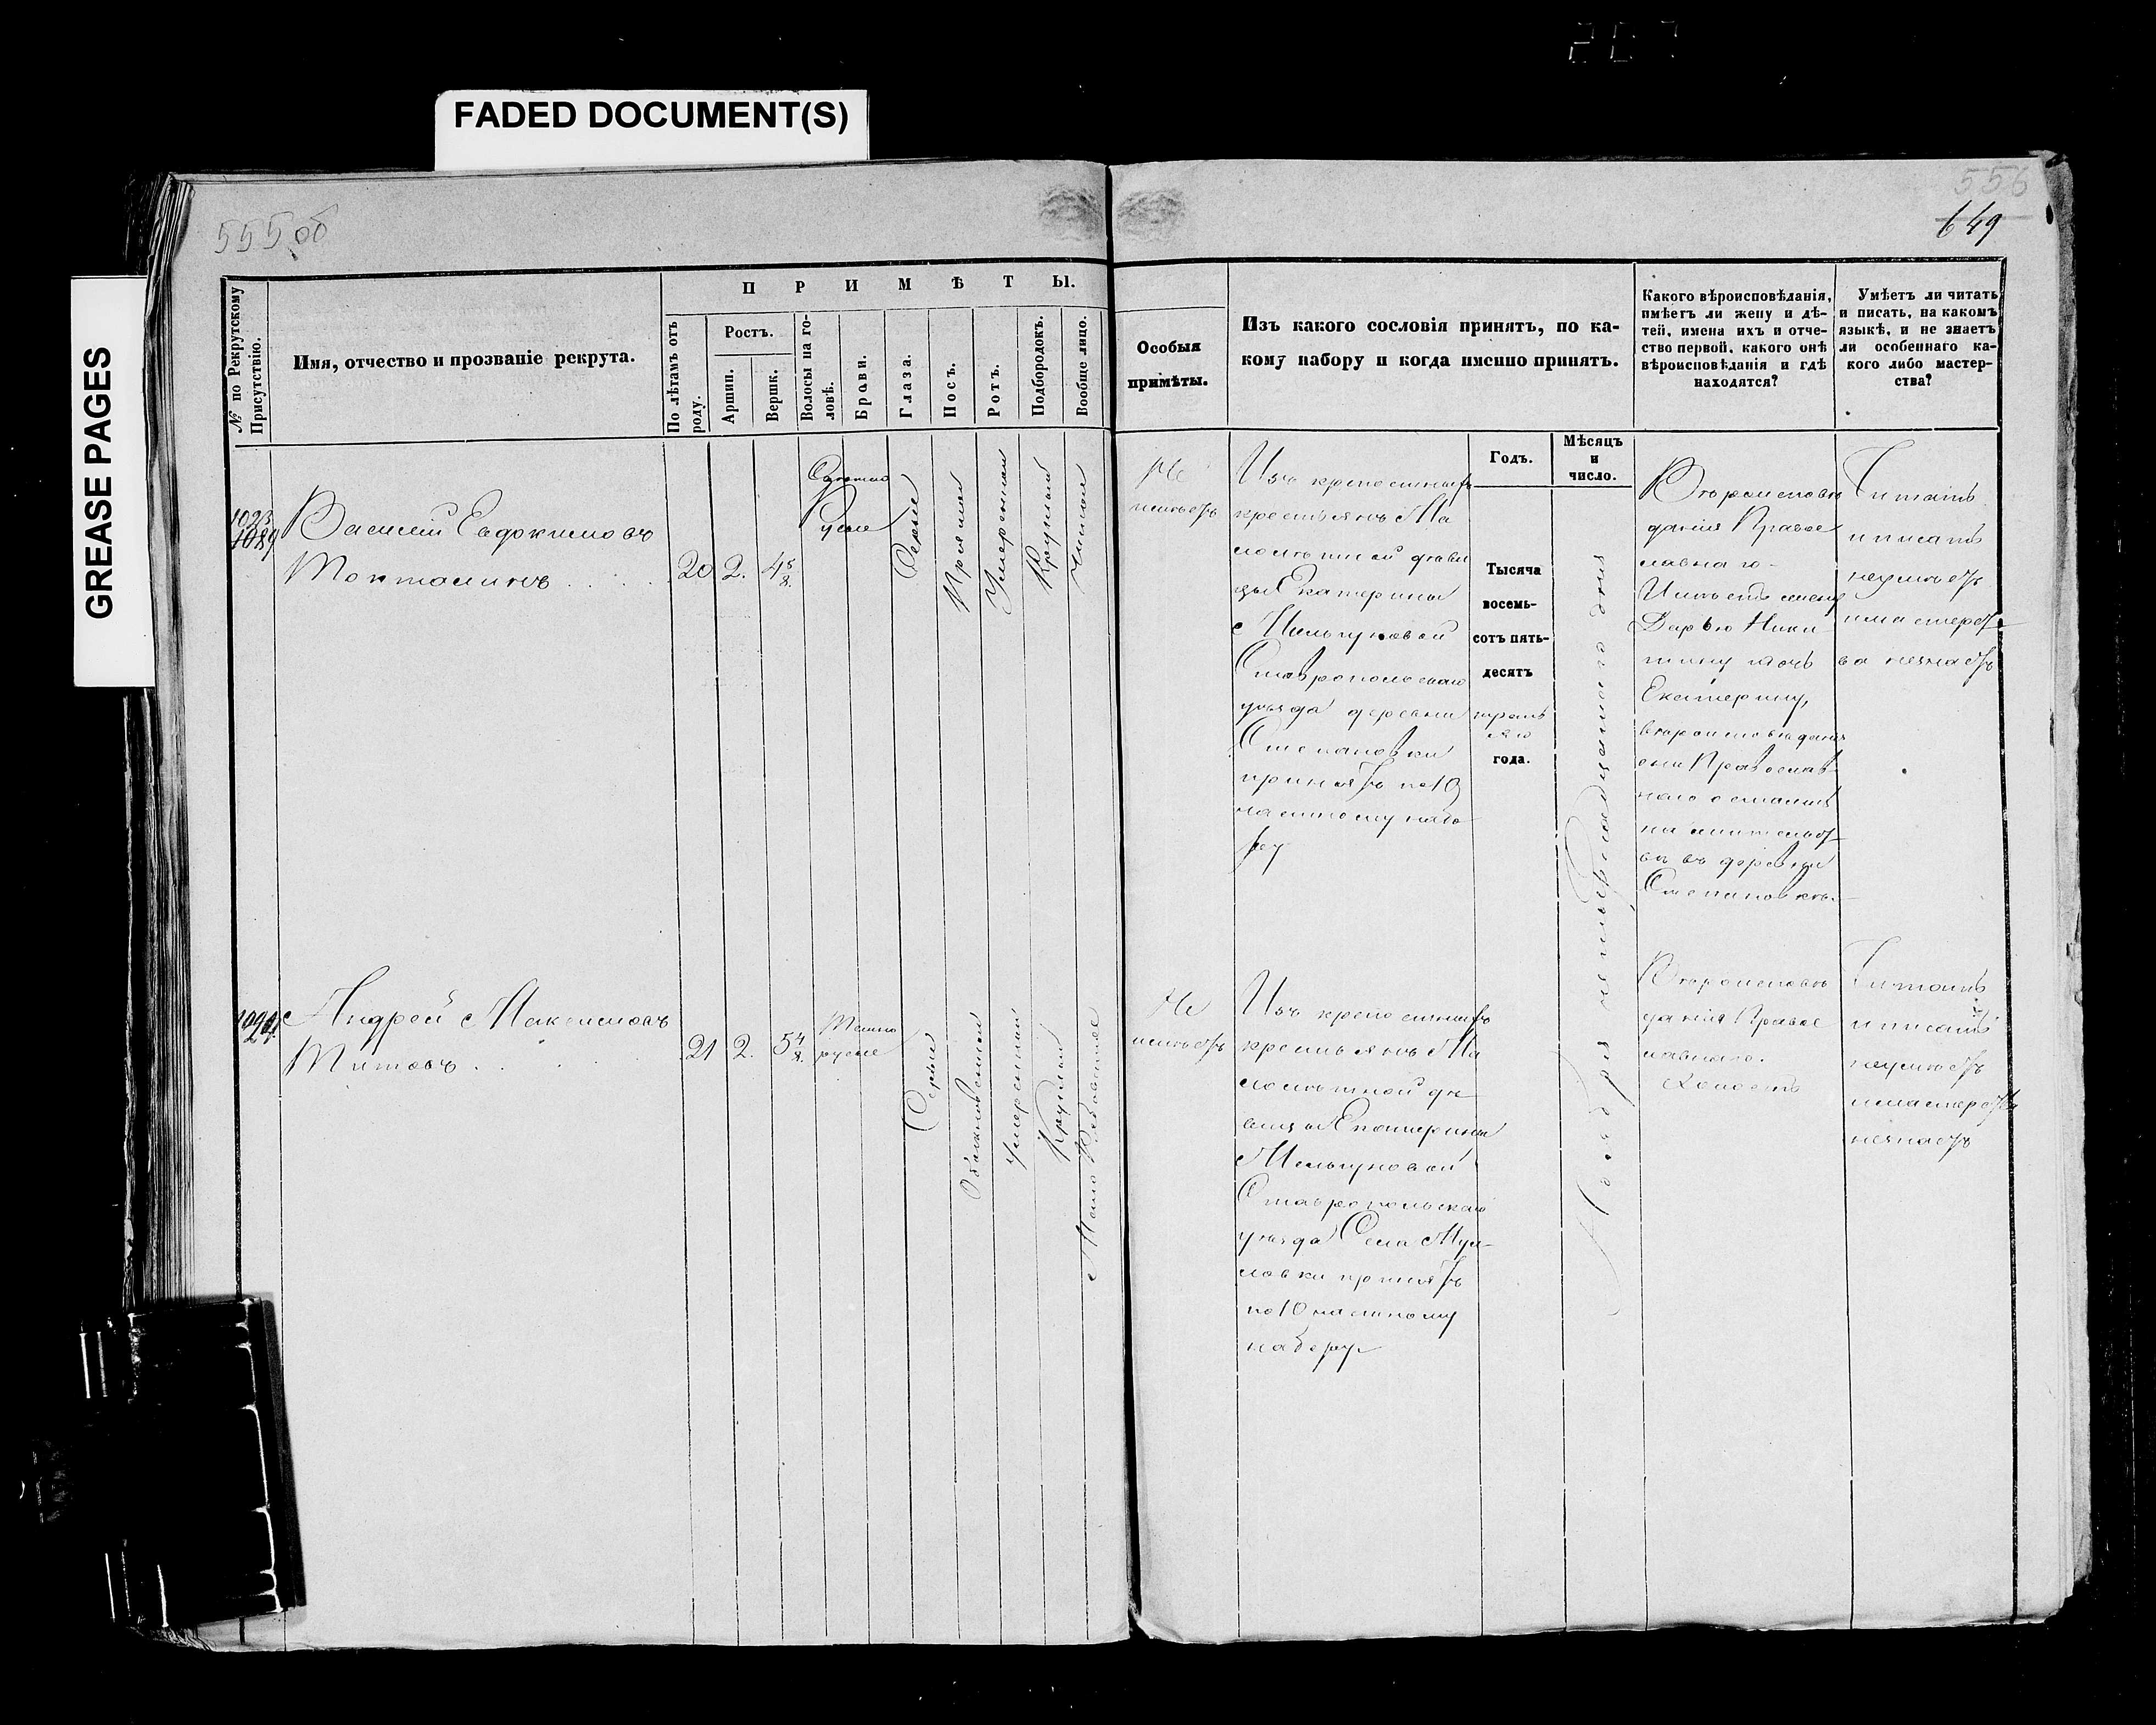 FADED DOCUMENT(S)
GREASE PAGES
555 об
556
649
№ по Рекрутскому Присутствію.
Имя, отчество и прозваніе рекрута.
ПРИМѢТЫ.
По лѣтамъ отъ роду.
Ростъ.
Аршин.
Вершк.
Волосы на го-
ловѣ.
Брови.
Глаза.
Носъ.
Ротъ.
Подбородокъ.
Вообще лицо.
Особыя
примѣты.
Изъ какого сословія принятъ, по ка-
кому набору и когда именно принятъ.
Годъ.
Мѣсяцъ
и
число.
Какого вѣроисповѣданія,
имѣетъ ли жену и дѣ-
тей, имена ихъ и отче-
ство первой, какого онѣ
вѣроисповѣданія и гдѣ
находятся?
Умѣетъ ли читать
и писать, на какомъ
языкѣ, и не знаетъ
ли особеннаго ка-
кого либо мастер-
ства?
Василий Евдокимовъ
20 2. 4 5/8.
Русые
Серые
Прямой
Умеренный
Круглый
Чистое
Не
имеѣтъ
Изъ крепостныхъ
крестьянъ Ма
лолѣтной дѣви
цы Екатерины
Мельгуновой
Ставропольскаго
уѣзда деревни
Степановки
принятъ по 10
частному набо
ру
Тысяча
восемь-
сотъ пять-
десятъ
года.
Ноября четырнадцатаго дня
Вѣроисповѣ
данія Правос
лавнаго.
Имѣетъ жену
Дарью Ники
тину дочь
Екатерину,
вѣроисповѣданія
они Православ-
наго
на жительст
ве въ деревне
Степановкѣ.
Читать
и писать
неумѣетъ
и мастерст
ва незнаетъ
Андрей Максимовъ
Титовъ
21 2. 5 4/8.
Темно
русые
Серые
Обыкновенной
Умеренный
Круглый
Мало Рябоватое
Не
имеѣтъ
Изъ крепостныхъ
крестьянъ Ма
лолѣтной дѣ
вицы Екатерины
Мельгуновой
Ставропольскаго
уѣзда Села Мул-
ловки принятъ
по 10 частному
набору
Вѣроисповѣ
данія Правос
лавнаго.
Холостъ
Читать
и писать
неумѣетъ
и мастерства
незнаетъ